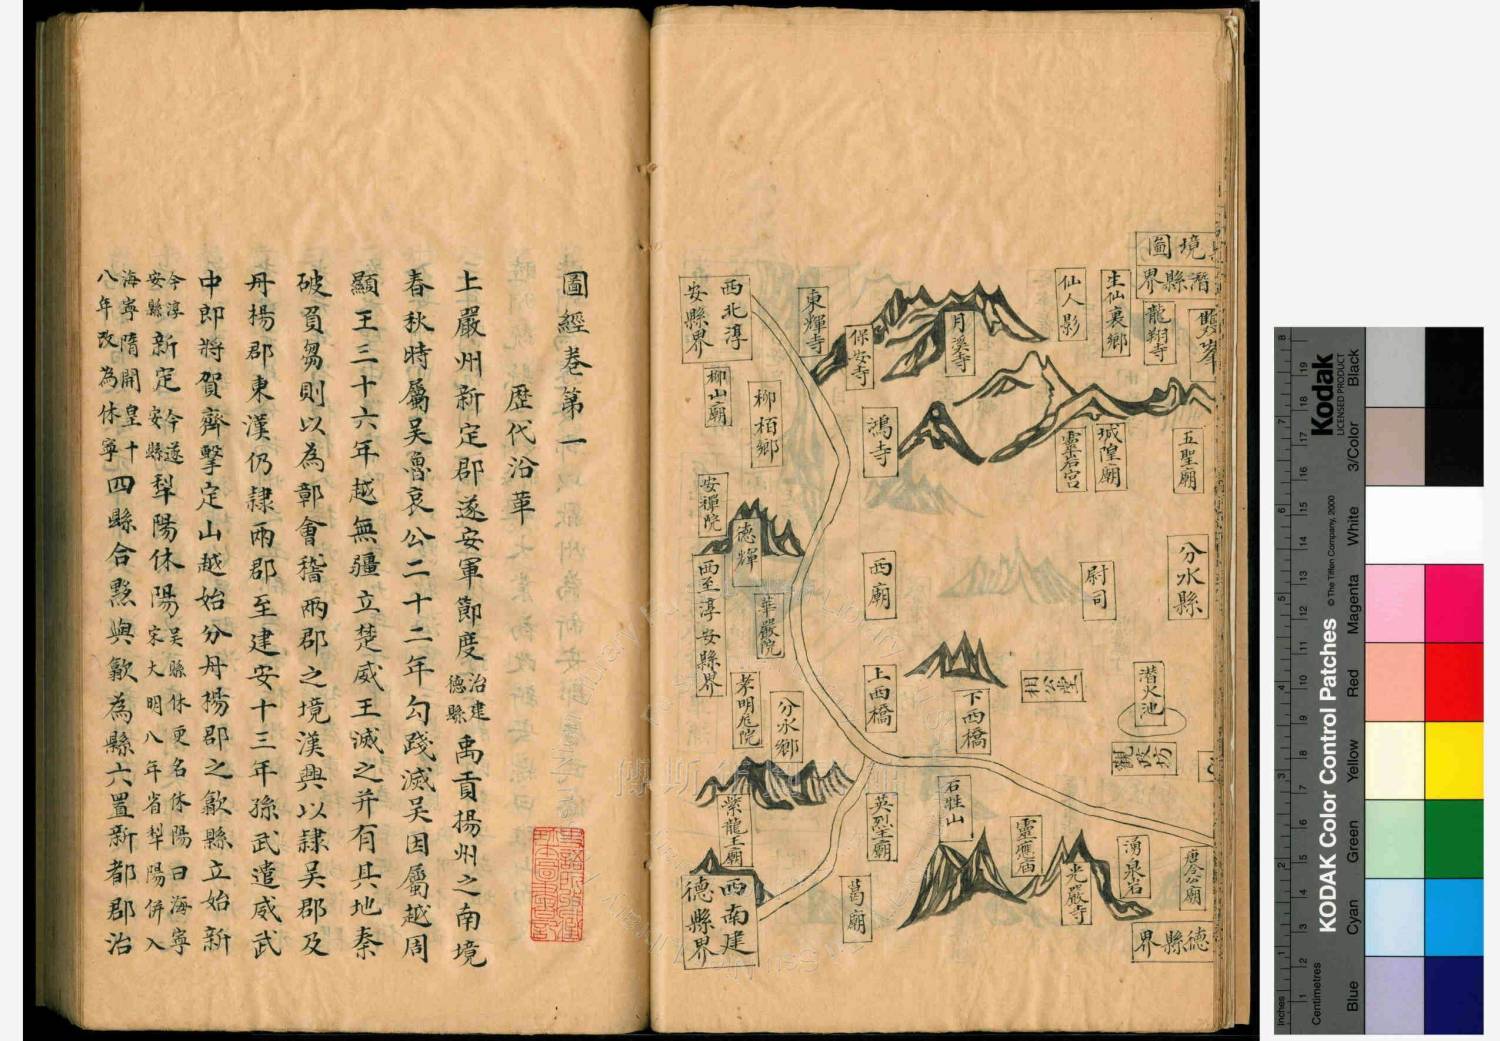 圖經卷第一
歷代沿革
上嚴州新定郡遂安軍節度治建德縣禹貢揚州之南境
春秋時屬吳魯哀公二十二年勾踐滅吳因屬越周
顯王三十六年越無疆立楚威王滅之并有其地秦
破負芻則以為鄣會稽兩郡之境漢興以隸吳郡及
丹揚郡東漢仍隸兩郡至建安十三年孫武遣威武
中郎將賀齊擊定山越始分丹揚郡之歙縣立始新
今淳安縣新定今遂安縣犁陽休陽吳縣休更名休陽曰海寧宋大明八年省犁陽併入
海寧隋開皇十八年改為休寧四縣合黟與歙為縣六置新都郡治
境圖
潛縣界
雙峯
龍翔寺
生仙裏鄉
仙人影
月溪寺
保安寺
東輝寺
西北淳安縣界
柳山廟
柳栢鄉
鴻寺
靈岩宮
城隍廟
五聖廟
安禪院
德輝
西至淳安縣界
華嚴院
西廟
尉司
分水縣
孝明庵院
分水鄉
上西橋
下西橋
潛火池
觀政坊
紫龍王廟
英烈王廟
石牲山
靈應庙
光嚴寺
湧泉岩
唐令公廟
葛廟
西南建德縣界
德縣界
Kodak
LICENSED PRODUCT
KODAK Color Control Patches
© The Tiffen Company, 2000
Blue
Cyan
Green
Yellow
Red
Magenta
White
3/Color
Black
Inches
Centimetres